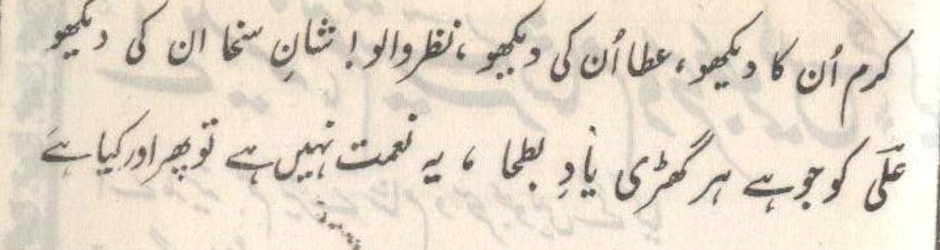 کرم اُن کا دیکھو، عطا اُن کی دیکھو، نظر والو! شانِ سخا ان کی دیکھو
علی کو جو ہے ہر گھڑی یادِ بطحا ، یہ نعمت نہیں ہے تو پھر اور کیا ہے